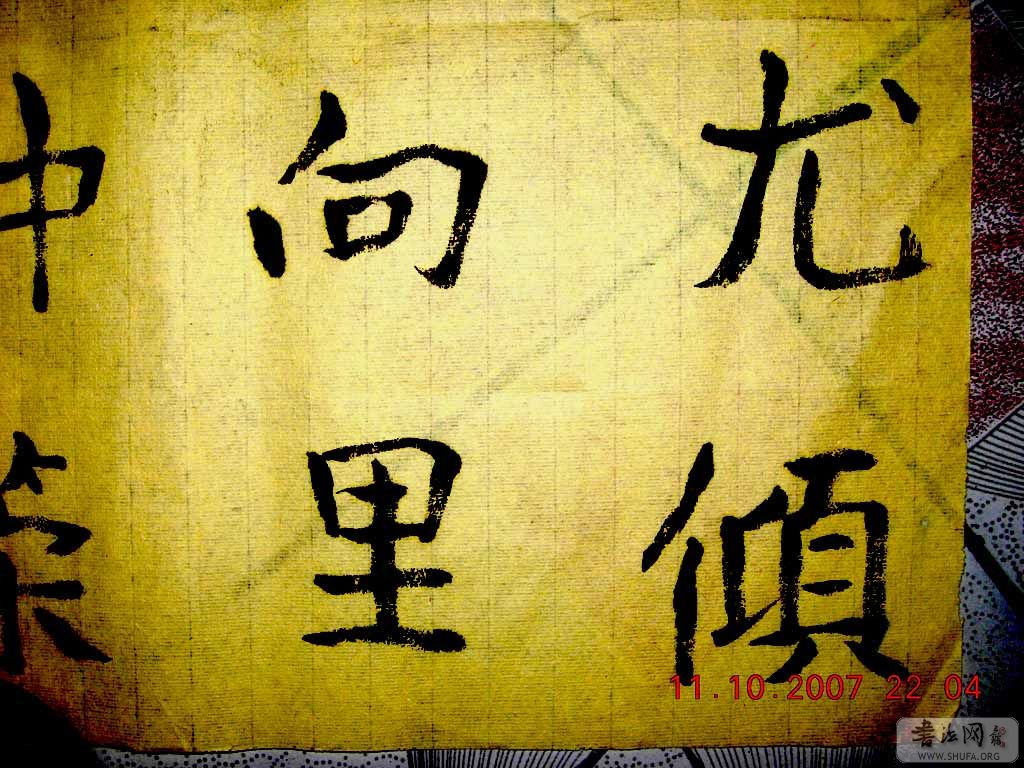 尤傾
向里
11.10.2007 22 04
書法网
WWW.SHUFA.ORG